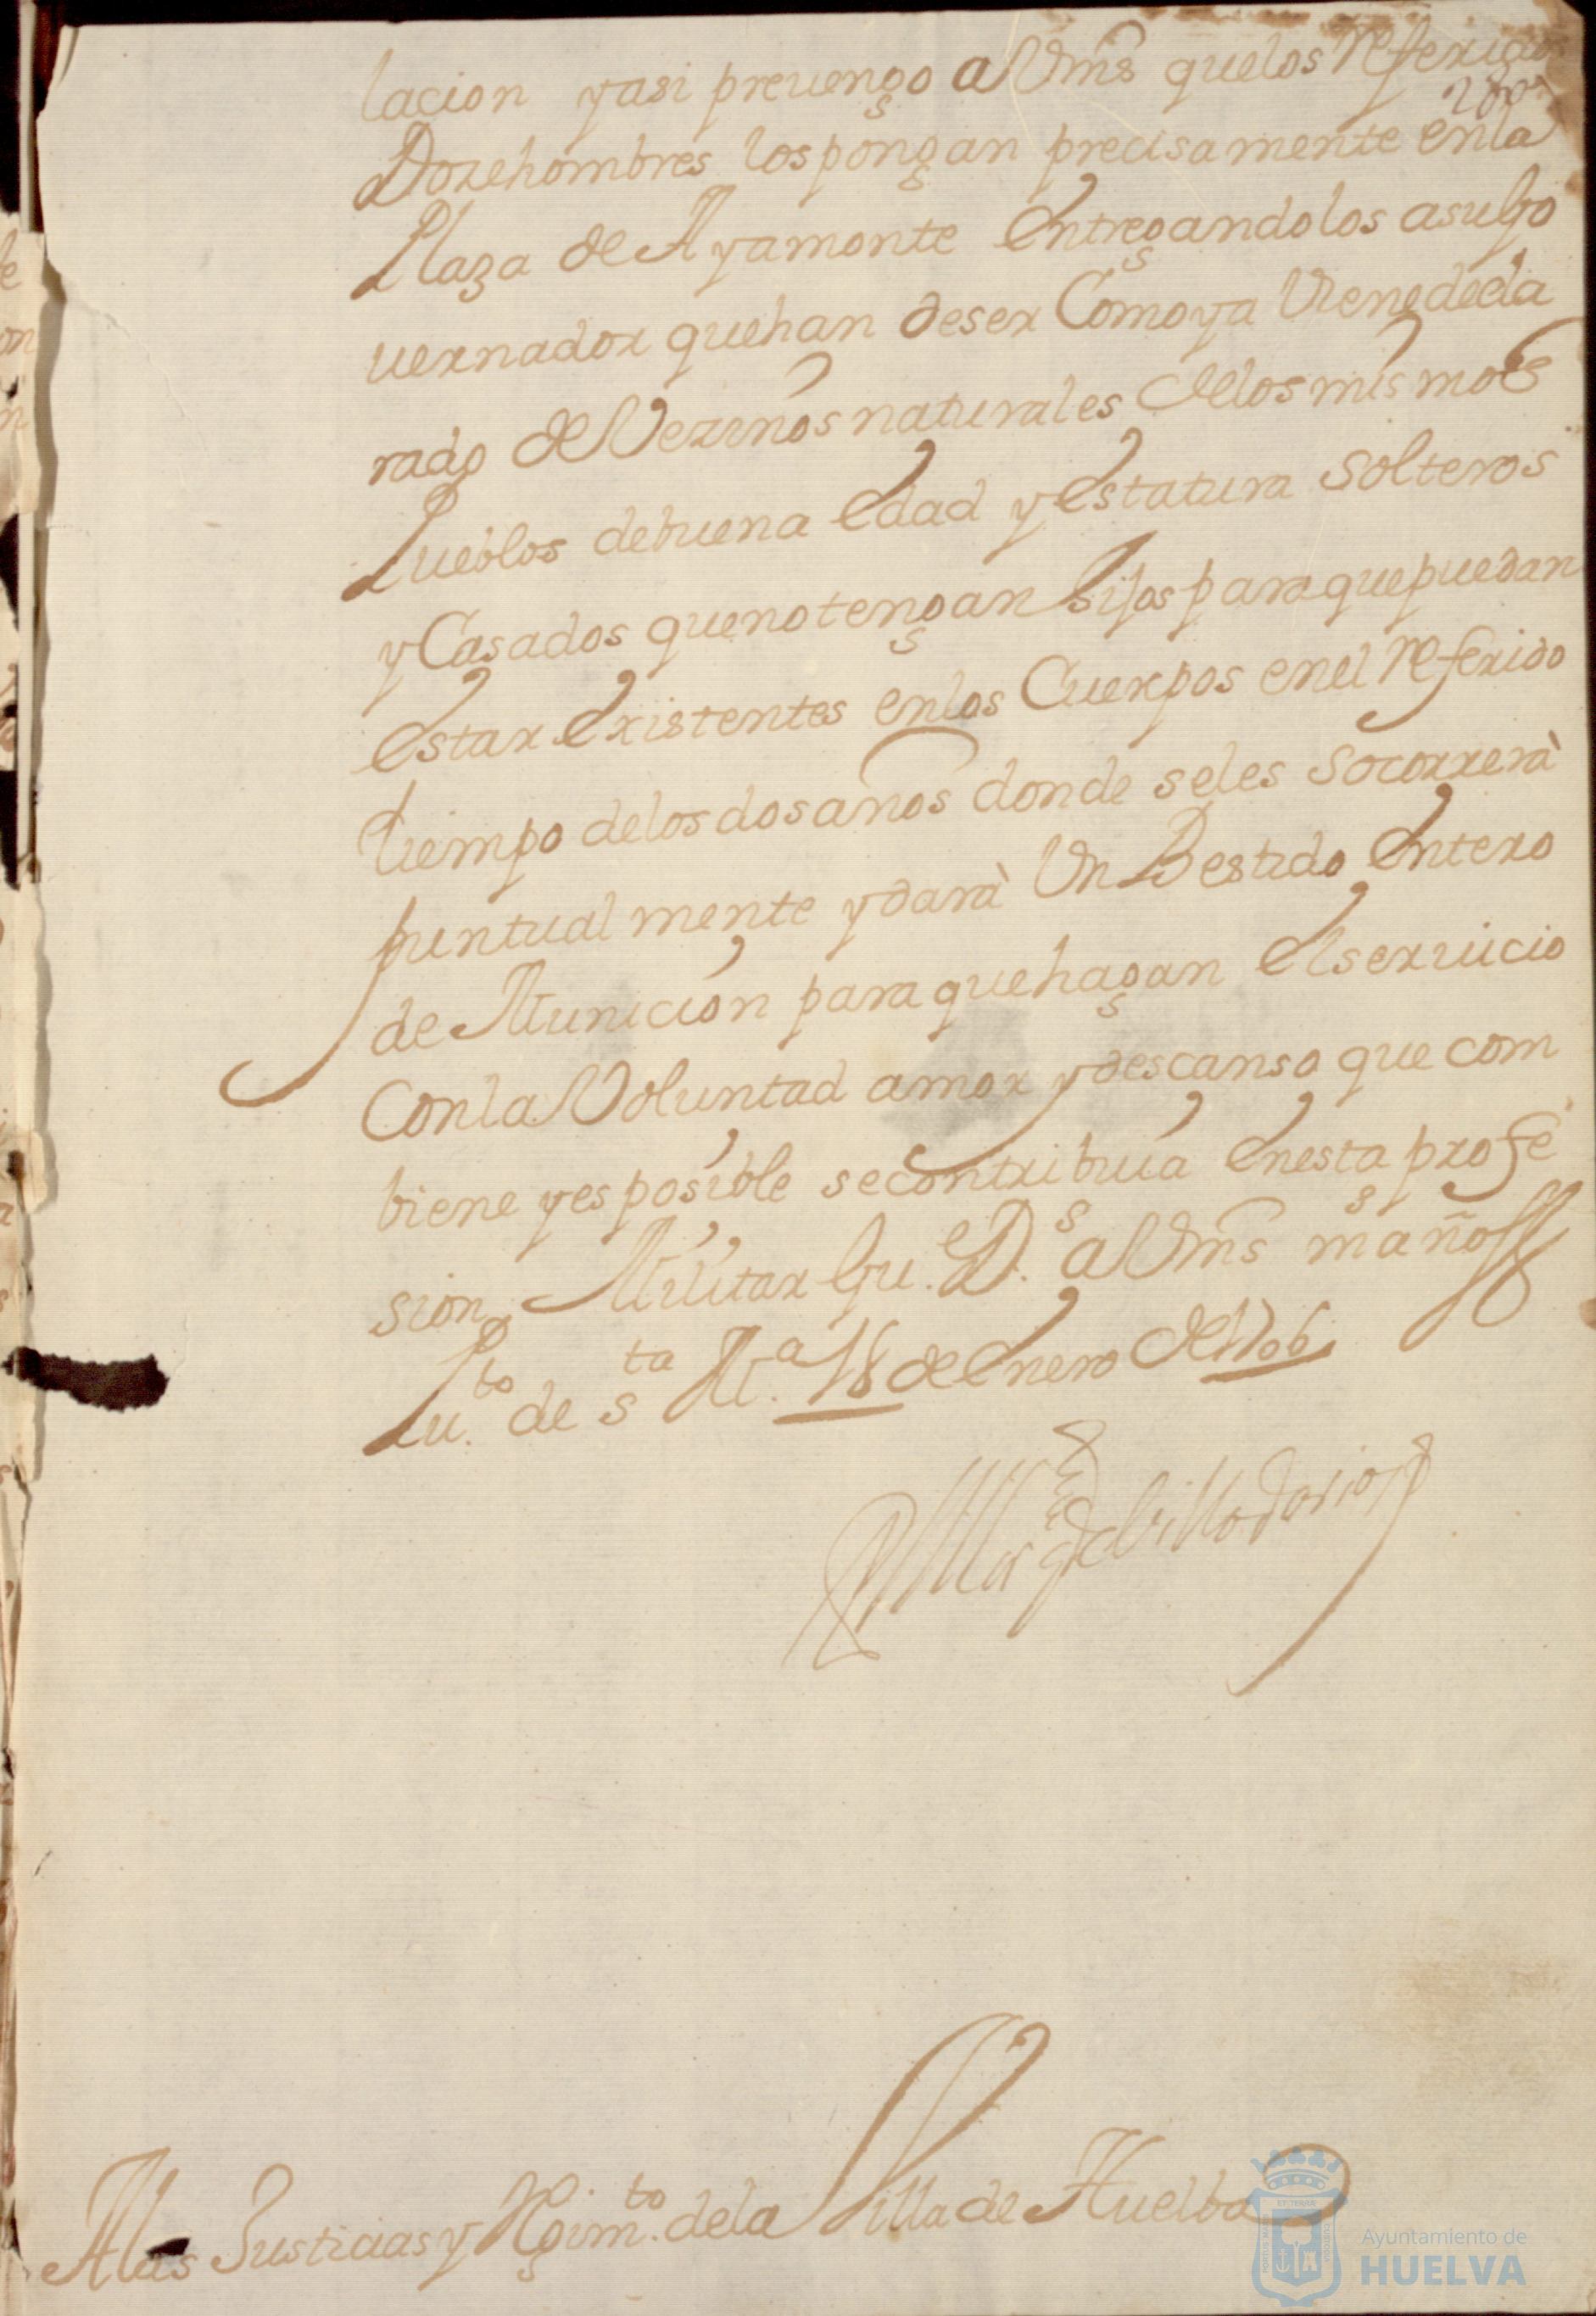 lacion y asi preuengo a Vms que los referidos
Doze hombres los pongan precisamente en la
Plaza de Ayamonte entregandolos a su Go
uernador que han de ser Como ya Viene decla
rado de Vezinos naturales de los mismos
Pueblos de buena edad y estatura solteros
y Casados que no tengan hijos para que puedan
estar existentes en los Cuerpos en el referido
tiempo de los dos años donde se les socorrerà
puntualmente y darà Un Bestido entero
de Municion para que hagan el seruicio
Con la Voluntad amor y descanso que com
biene y es posible se contribuia en esta profe
sion Militar Gu.e D.s a Vms ms años
Pu.to de Sta M.a 18 de Enero de 1706
El Marqs de Villadarias
A las Justicias y Rejim.to de la Villa de Huelba
Ayuntamiento de
HUELVA